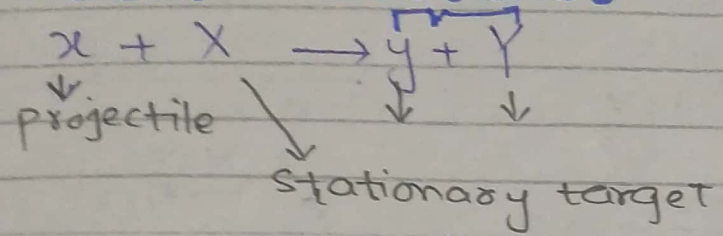 x + X → y + Y
projectile
stationary target